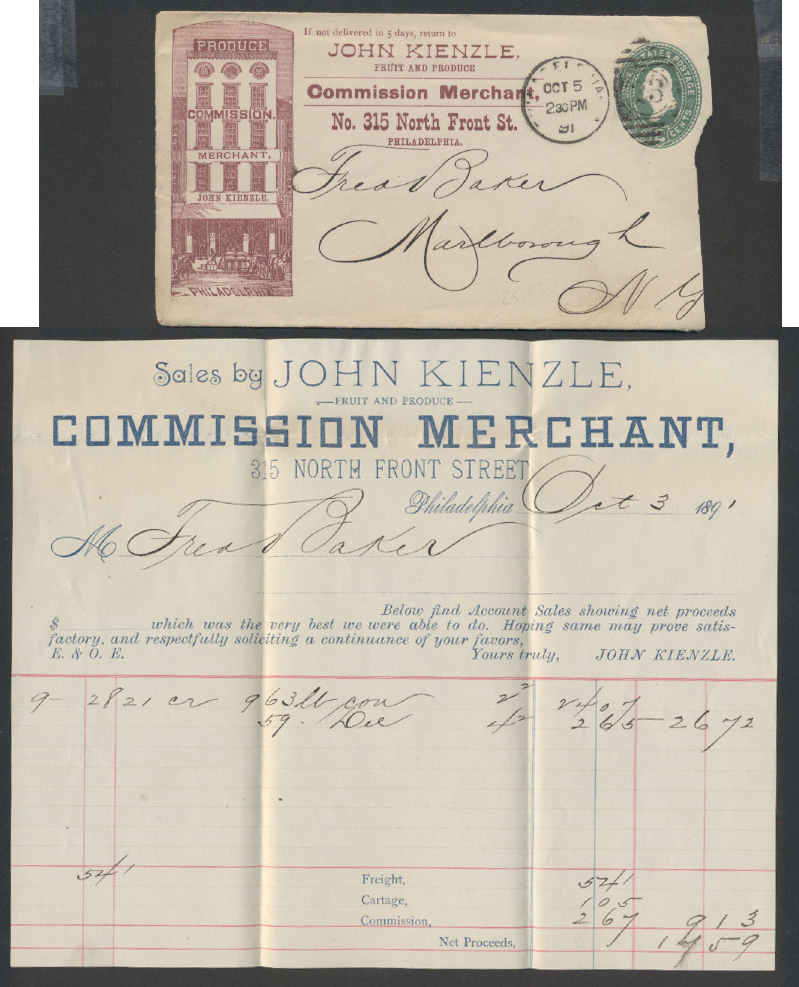 PRODUCE
COMMISSION.
MERCHANT,
JOHN KIENZLE,
PHILADELPHIA
If not delivered in 5 days, return to
JOHN KIENZLE,
FRUIT AND PRODUCE
Commission Merchant,
No. 315 North Front St.
PHILADELPHIA.
PHILADELPHIA
OCT 5
2 30 PM
91
STATES POSTAGE
CENTS
Fred Baker
Marlborough
N Y
Sales by JOHN KIENZLE,
FRUIT AND PRODUCE
COMMISSION MERCHANT,
315 NORTH FRONT STREET
Philadelphia Oct 3 1891
M Fred Baker
Below find Account Sales showing net proceeds
$ which was the very best we were able to do. Hoping same may prove satis-
factory, and respectfully soliciting a continuance of your favors,
E. & O. E. Yours truly, JOHN KIENZLE.
9- 28 21 cr 963 lb con 2 2 2407
59. Del 4 2 265 2672
541 Freight, 541
Cartage, 105
Commission, 267 913
Net Proceeds, 1459